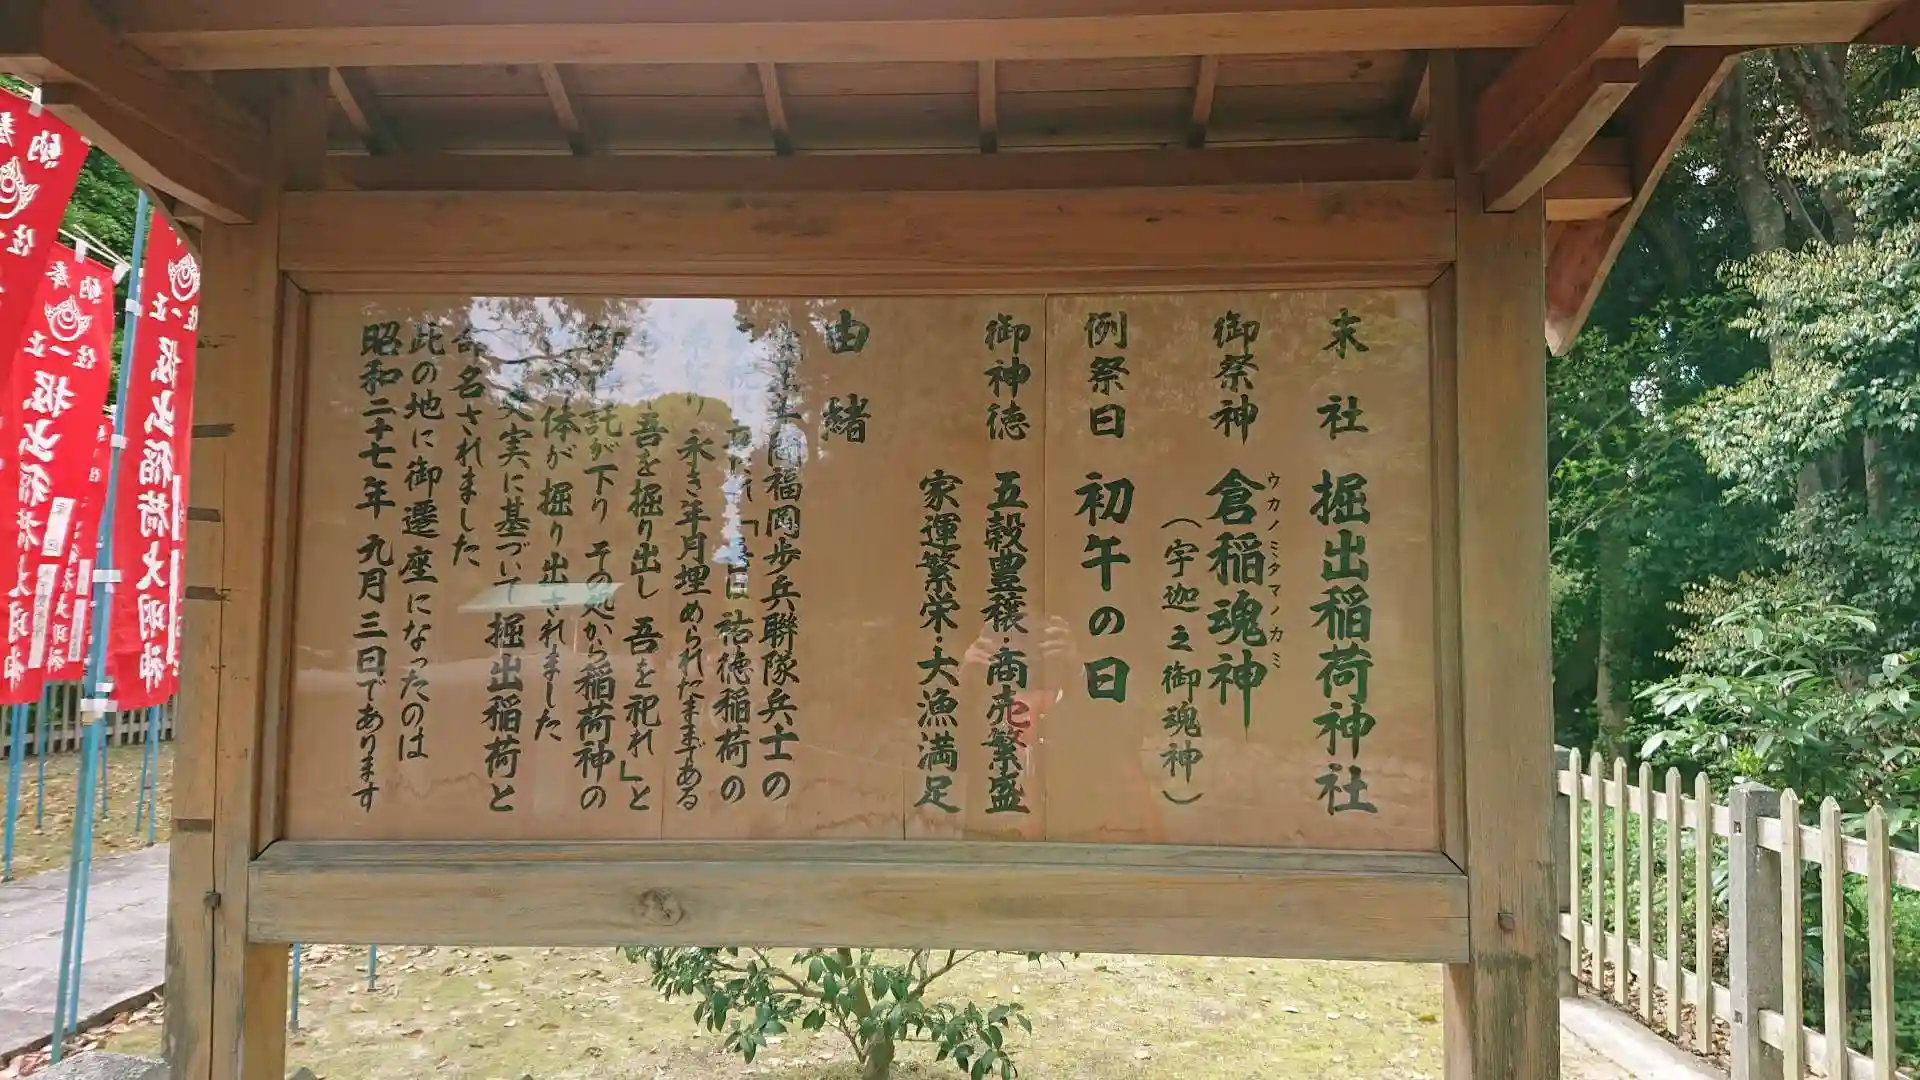 末社 掘出稲荷神社
御祭神 倉稲魂神
ウカノミタマノカミ
(宇迦之御魂神)
例祭日 初午の日
御神徳 五穀豊穣・商売繁盛
家運繁栄・大漁満足
由緒
福岡歩兵聯隊兵士の
祐徳稲荷の
り永き年月埋められたままである
吾を掘り出し 吾を祀れ」と
御神託が下り その処から稲荷神の
体が掘り出されました
史実に基づいて掘出稲荷と
命名されました
此の地に御遷座になったのは
昭和二十七年九月三日であります
奉納
正一位
掘出稲荷大明神
奉納
正一位
掘出稲荷大明神